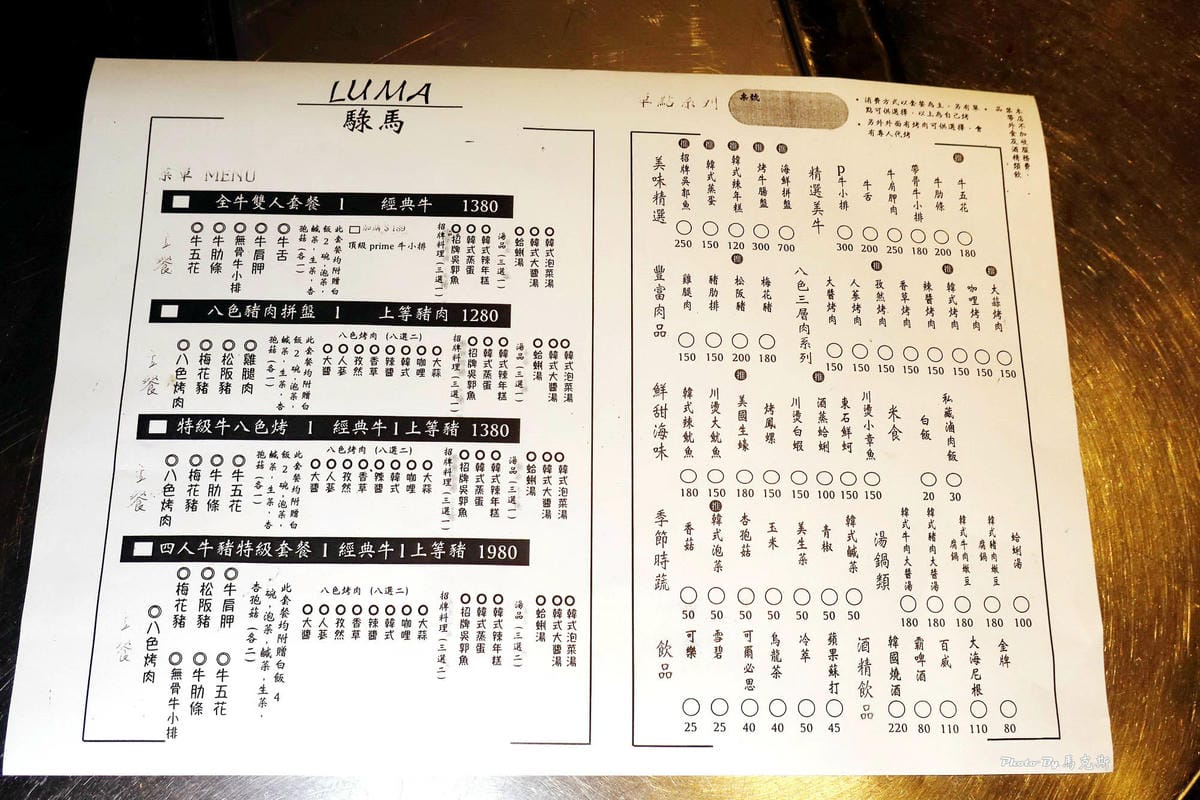 LUMA
騄馬
菜單 MENU
全牛雙人套餐 1 經典牛 1380
主餐
牛五花
牛肋條
無骨牛小排
牛肩胛
牛舌
此套餐均附贈白飯2碗,泡菜,鹹菜,生菜,杏孢菇(各一)
加購$189
頂級 prime 牛小排
招牌料理(三選一)
招牌吳郭魚
韓式蒸蛋
韓式辣年糕
湯品(三選一)
蛤蜊湯
韓式大醬湯
韓式泡菜湯
八色豬肉拼盤 1 上等豬肉 1280
主餐
八色烤肉
梅花豬
松阪豬
雞腿肉
此套餐均附贈白飯2碗,泡菜,鹹菜,生菜,杏孢菇(各一)
八色烤肉 (八選二)
大醬
人蔘
孜然
香草
辣醬
韓式
咖哩
大蒜
招牌料理(三選一)
招牌吳郭魚
韓式蒸蛋
韓式辣年糕
湯品(三選一)
蛤蜊湯
韓式大醬湯
韓式泡菜湯
特級牛八色烤 1 經典牛1上等豬 1380
主餐
八色烤肉
梅花豬
牛肋條
牛五花
此套餐均附贈白飯2碗,泡菜,鹹菜,生菜,杏孢菇(各一)
八色烤肉 (八選二)
大醬
人蔘
孜然
香草
辣醬
韓式
咖哩
大蒜
招牌料理(三選一)
招牌吳郭魚
韓式蒸蛋
韓式辣年糕
湯品(三選一)
蛤蜊湯
韓式大醬湯
韓式泡菜湯
四人牛豬特級套餐 1 經典牛1上等豬 1980
主餐
八色烤肉
梅花豬
松阪豬
牛肩胛
無骨牛小排
牛肋條
牛五花
此套餐均附贈白飯4碗,泡菜,鹹菜,生菜,杏孢菇(各二)
八色烤肉 (八選二)
大醬
人蔘
孜然
香草
辣醬
韓式
咖哩
大蒜
招牌料理(三選二)
招牌吳郭魚
韓式蒸蛋
韓式辣年糕
湯品(三選二)
蛤蜊湯
韓式大醬湯
韓式泡菜湯
單點系列
桌號
• 消費方式以套餐為主,另有單點可供選擇,以上為自己烤
• 另外外面有烤肉可供選擇,會有專人代烤
• 本店不加收服務費,禁帶外食及酒精類飲品
美味精選
推 招牌吳郭魚 250
推 韓式蒸蛋 150
推 韓式辣年糕 120
推 烤牛腸盤 300
推 海鮮拼盤 700
精選美牛
P牛小排 300
牛舌 200
牛肩胛肉 250
帶骨牛小排 180
牛肋條 200
推 牛五花 180
豐富肉品
雞腿肉 150
豬肋排 150
推 松阪豬 200
梅花豬 180
八色三層肉系列
大醬烤肉 150
人蔘烤肉 150
推 孜然烤肉 150
香草烤肉 150
辣醬烤肉 150
推 韓式烤肉 150
咖哩烤肉 150
推 大蒜烤肉 150
鮮甜海味
韓式辣魷魚 180
川燙大魷魚 150
推 美國生蠔 180
烤鳳螺 150
川燙白蝦 150
推 酒蒸蛤蜊 100
東石鮮蚵 150
川燙小章魚 150
米食
白飯 20
私藏滷肉飯 30
季節時蔬
香菇 50
推 韓式泡菜 50
杏孢菇 50
玉米 50
美生菜 50
青椒 50
韓式鹹菜 50
湯鍋類
韓式牛肉大醬湯 180
韓式豬肉大醬湯 180
韓式牛肉嫩豆腐鍋 180
韓式豬肉嫩豆腐鍋 180
蛤蜊湯 100
飲品
可樂 25
雪碧 25
可爾必思 40
烏龍茶 40
冷萃 50
蘋果蘇打 45
酒精飲品
韓國燒酒 220
霸啤酒 80
百威 110
大海尼根 110
金牌 80
Photo By 馬克斯